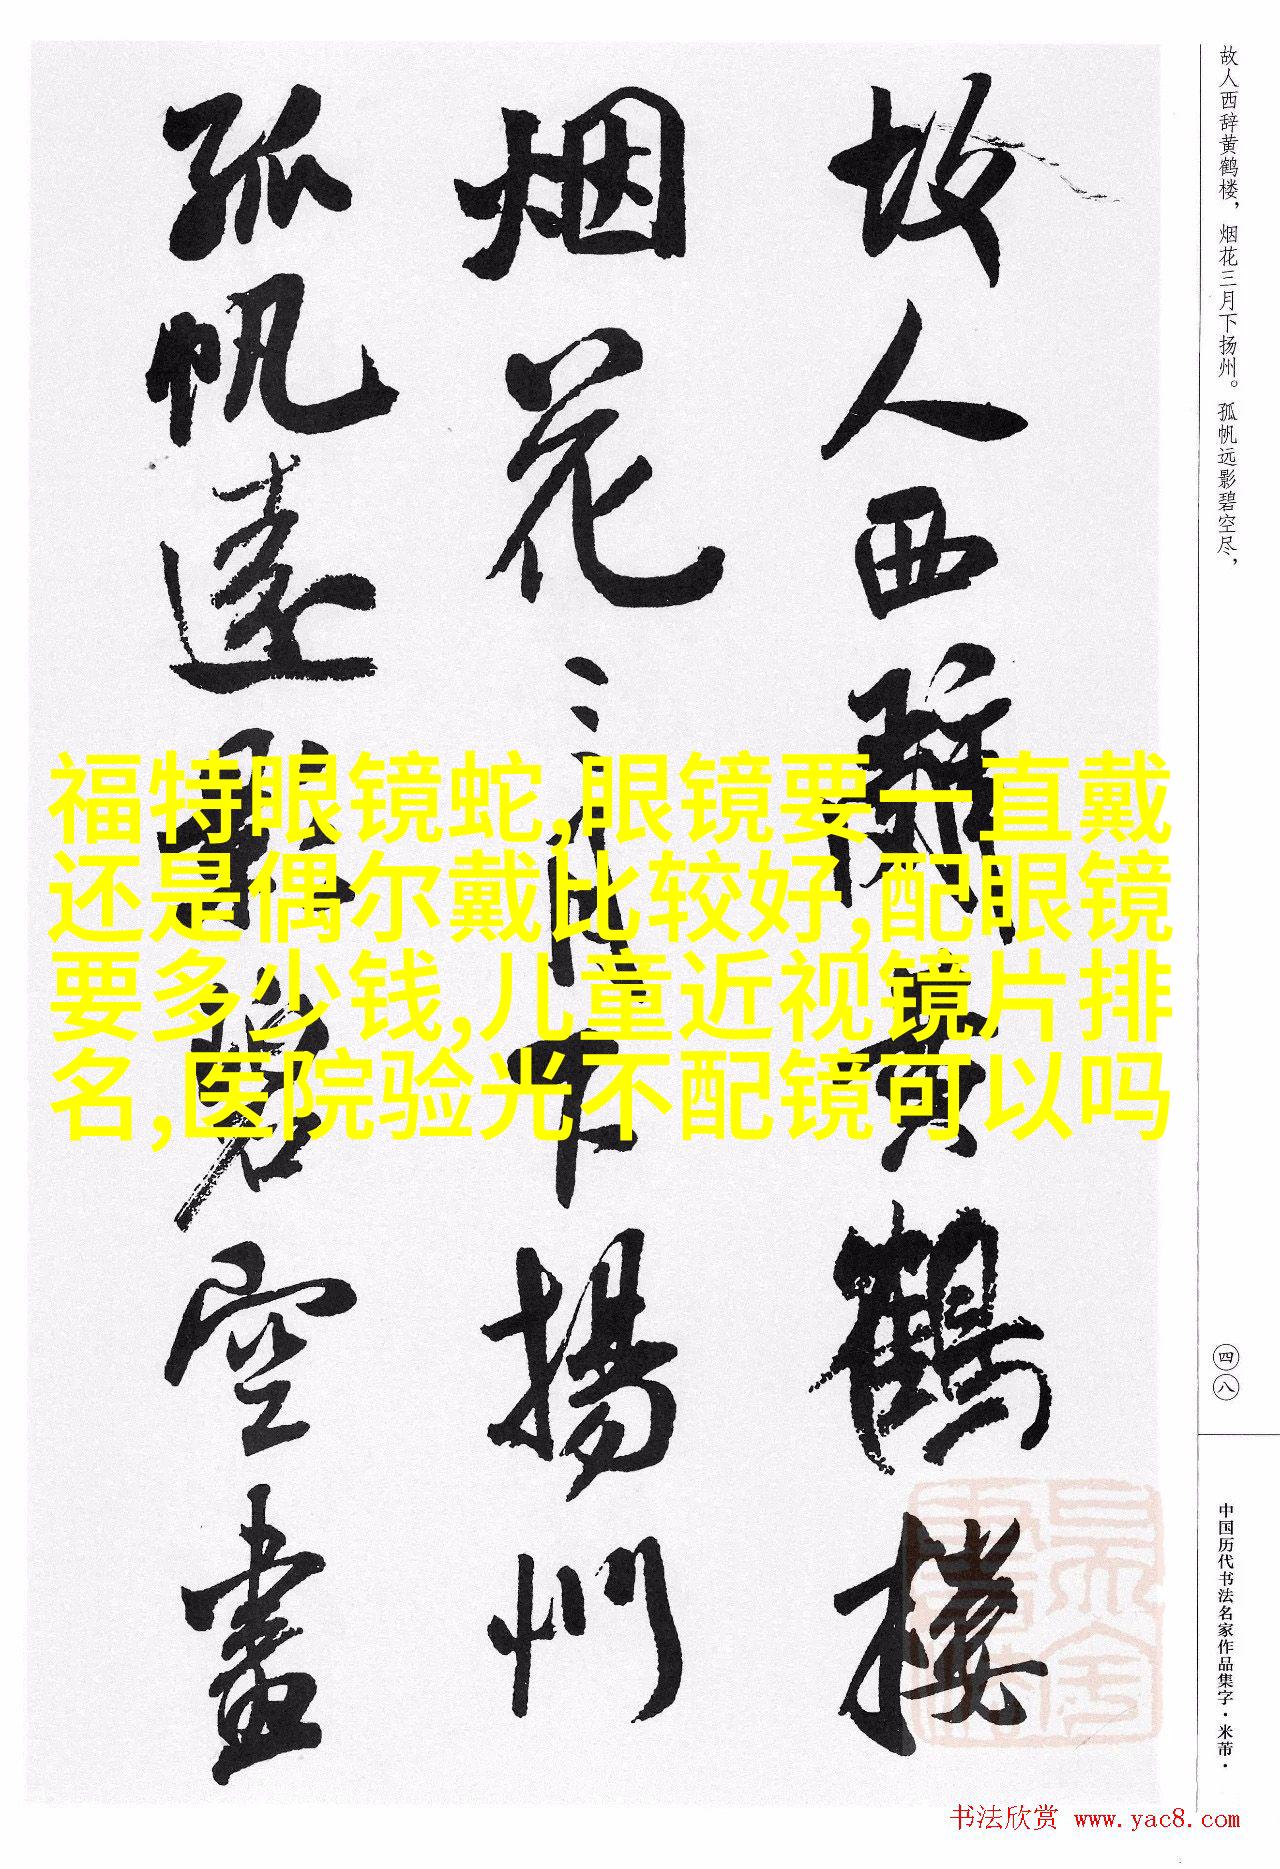 故人西辞黄鹤楼，烟花三月下扬州。孤帆远影碧空尽，
故人西辭黄鶴楼
烟花三月下揚州
孤帆遠影碧空盡
福特眼镜蛇,眼镜要一直戴
还是偶尔戴比较好,配眼镜
要多少钱,儿童近视镜片排
名,医院验光不配镜可以吗
四八
中国历代书法名家作品集字·米芾·
书法欣赏 www.yac8.com